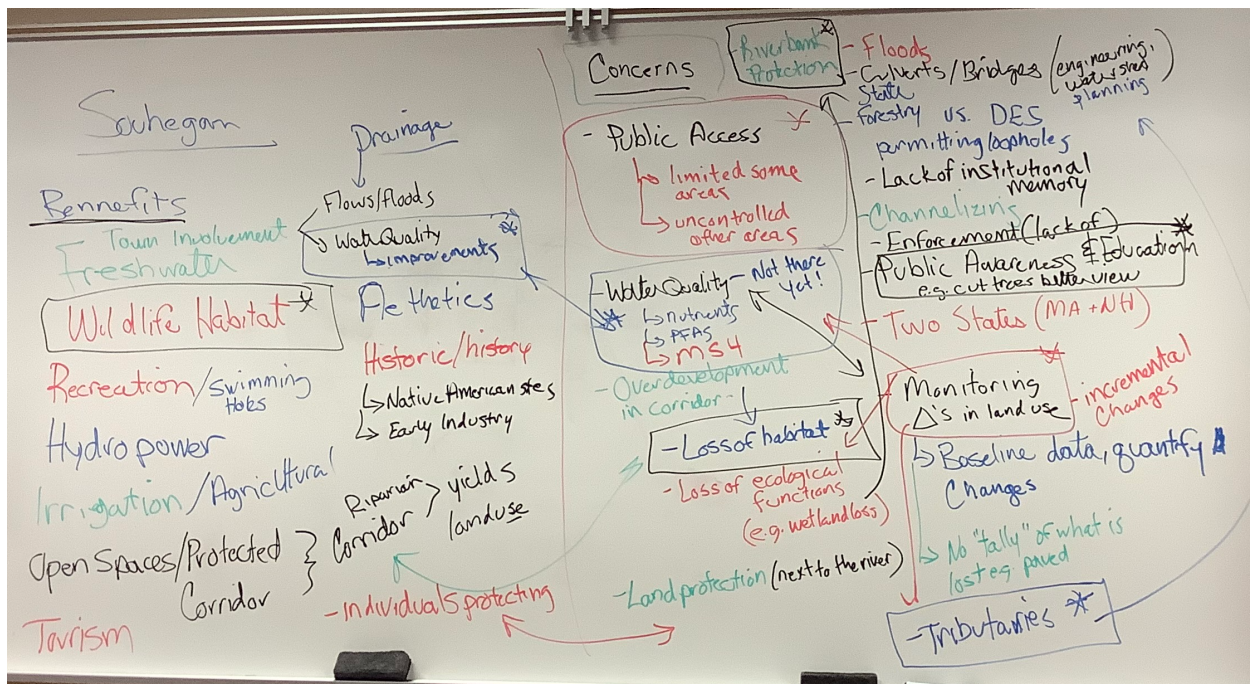 Souhegan
Bennefits
Town Involvement
Freshwater
Wildlife Habitat
Recreation/swimming
Holes
Hydropower
Irrigation/Agricltural
Open Spaces/Protected
Corridor
Tourism
Drainage
Flows/floods
Water Quality
improvements
Aethetics
Historic/history
Native American sites
Early Industry
Riparian
Corridor
yields
landuse
- Individuals protecting
Concerns
- Public Access
limited some
areas
uncontrolled
other areas
- Water Quality - Not there
yet!
nutrients
PFAS
MS4
- Overdevelopment
in corridor -
- Loss of habitat
- Loss of ecological
functions
(e.g. wetland loss)
- Land protection (next to the river)
- Riverbank
Protection
- Floods
- Culverts/Bridges (engineering,
watershed
planning)
State
- Forestry vs. DES
permitting loopholes
- Lack of institutional
memory
- Channelizing
- Enforcement (lack of)
- Public Awareness & Education
e.g. cut trees better view
- Two States (MA + NH)
- Monitoring
Δ's in land use
- incremental
Changes
Baseline data, quantify
Changes
No "tally" of what is
lost e.g. paved
- Tributaries